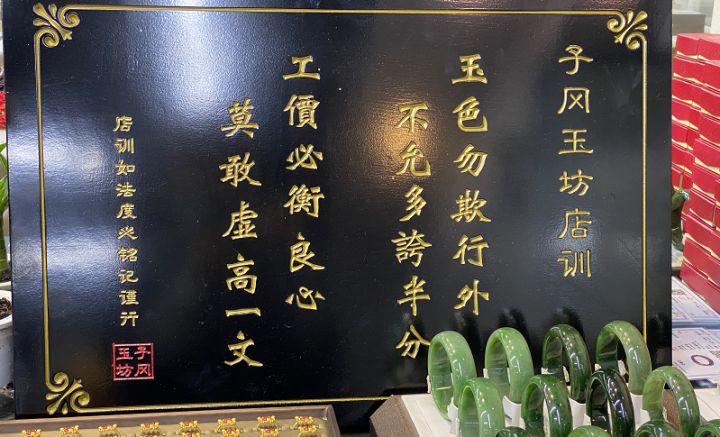 子冈玉坊店训
玉色勿欺行外
不允多誇半分
工價必衡良心
莫敢虚高一文
店训如法度必铭记谨行
子冈
玉坊